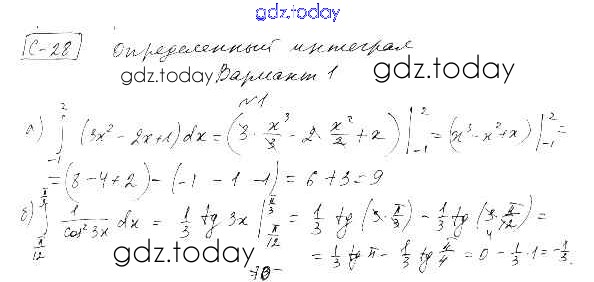 gdz.today
С-28 Определенный интеграл
gdz.today Вариант 1 gdz.today
№1
а) ∫₋₁² (3x² - 2x + 1) dx = (3 · x³/3 - 2 · x²/2 + x) |₋₁² = (x³ - x² + x) |₋₁² =
= (8 - 4 + 2) - (-1 - 1 - 1) = 6 + 3 = 9
б) ∫_{π/12}^{π/3} 1/cos² 3x dx = 1/3 tg 3x |_{π/12}^{π/3} = 1/3 tg (3 · π/3) - 1/3 tg (3 · π/12) =
= 1/3 tg π - 1/3 tg π/4 = 0 - 1/3 · 1 = -1/3.
gdz.today